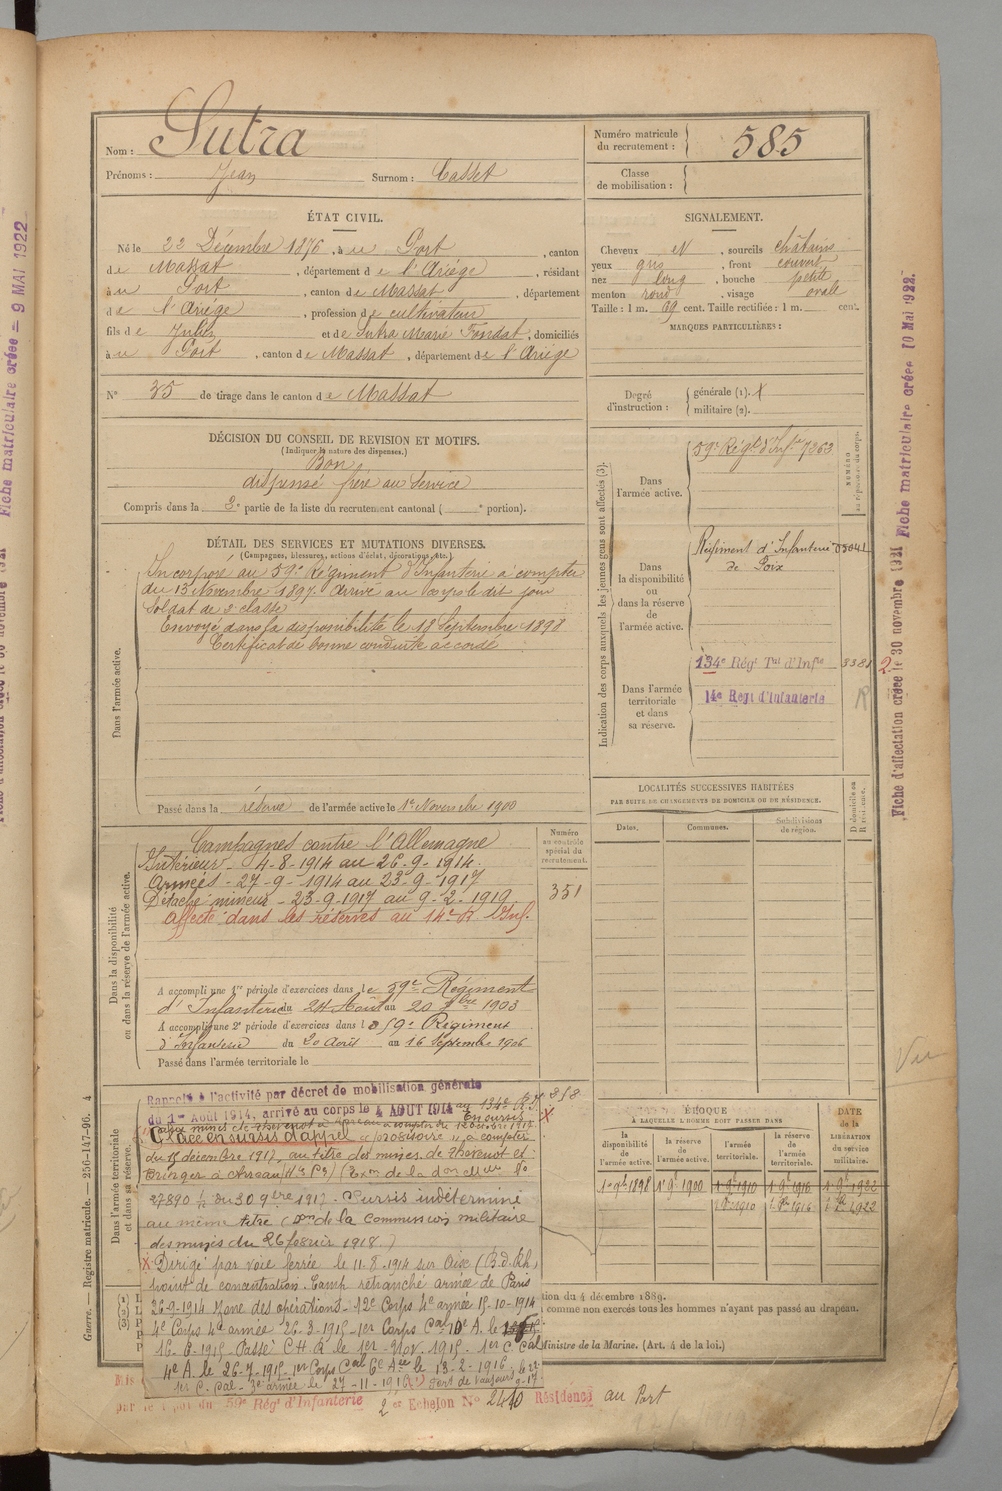 Nom : Sutra
Prénoms : Jean Surnom : Casset
Numéro matricule du recrutement : 585
Classe de mobilisation :
ÉTAT CIVIL.
Né le 22 Décembre 1876, à u Port, canton
de Massat, département de l'Ariége, résidant
à u Port, canton de Massat, département
de l'Ariége, profession de cultivateur
fils de Julien et de Sutra Marie Fondat, domiciliés
à u Port, canton de Massat, département de l'Ariége
N° 35 de tirage dans le canton de Massat
SIGNALEMENT.
Cheveux N, sourcils châtains
yeux gris, front couvert
nez long, bouche petite
menton rond, visage ovale
Taille : 1 m. 69 cent. Taille rectifiée : 1 m. cent.
MARQUES PARTICULIÈRES :
Degré d'instruction :
générale (1).
militaire (2).
DÉCISION DU CONSEIL DE REVISION ET MOTIFS.
(Indiquer la nature des dispenses.)
Bon
dispensé frère au service
Compris dans la 3e partie de la liste du recrutement cantonal ( e portion).
DÉTAIL DES SERVICES ET MUTATIONS DIVERSES.
(Campagnes, blessures, actions d'éclat, décorations, etc.)
Dans l'armée active.
Incorporé au 59e Régiment d'Infanterie à compter
du 13 Novembre 1897. Arrivé au corps le dit jour
Soldat de 2e classe
Envoyé dans la disponibilité le 18 Septembre 1898
Certificat de bonne conduite accordé
Passé dans la réserve de l'armée active le 1er Novembre 1900
Indication des corps auxquels les jeunes gens sont affectés (3).
Dans l'armée active.
59e Régt d'Infie 7363
Dans la disponibilité ou dans la réserve de l'armée active.
Régiment d'Infanterie 05041
de Foix
Dans l'armée territoriale et dans sa réserve.
134e Régt Tal d'Infie 3381
14e Régt d'Infanterie
LOCALITÉS SUCCESSIVES HABITÉES
PAR SUITE DE CHANGEMENTS DE DOMICILE OU DE RÉSIDENCE.
Dates. Communes. Subdivisions de région. D domicile ou R résidence.
Dans la disponibilité ou dans la réserve de l'armée active.
Numéro au contrôle spécial du recrutement.
351
Campagnes contre l'Allemagne
Intérieur - 4-8-1914 au 26-9-1914.
Armées - 27-9-1914 au 23-9-1917
Détaché mineur - 23-9-1917 au 9-2-1919
Affecté dans les réserves au 14e R. Inf.
A accompli une 1re période d'exercices dans le 59e Régiment
d'Infanterie du 24 Août au 20 7bre 1903
A accompli une 2e période d'exercices dans le 59e Régiment
d'Infanterie du 20 Août au 16 Septembre 1906
Passé dans l'armée territoriale le
Dans l'armée territoriale et dans sa réserve.
Rappelé à l'activité par décret de mobilisation générale
du 1er Août 1914, arrivé au corps le 4 AOUT 1914 au 134e R.I.
En sursis
Placé en sursis d'appel "provisoire" à compter
du 15 décembre 1917, au titre des mines de Thevenot et
27890 1/2 du 30 9bre 1917 - Sursis indéterminé
au même titre (Don de la commission militaire
des mines du 26 février 1918.)
X Dirigé par voie ferrée le 11-8-1914 sur Aix (B.d.Rh)
point de concentration. Camp retranché armée de Paris
26-9-1914 zone des opérations - 12e Corps 4e armée 15-10-1914
4e Corps 4e armée 26-3-1915 - 1er Corps Cal 10e A. le
16-6-1915 Passé C.H.R le 1er Nov. 1915. 1er C. Cal
4e A. le 26-7-1915. 1er Corps Cal 6e Aée le 13-2-1916
1er C. Cal - 3e armée le 27-11-1916
ÉPOQUE
À LAQUELLE L'HOMME DOIT PASSER DANS
la disponibilité de l'armée active. la réserve de l'armée active. l'armée territoriale. la réserve de l'armée territoriale.
DATE de la LIBÉRATION du service militaire.
1er 9bre 1898 1er 9bre 1900 1er 9bre 1910 1er 9bre 1916 1er 9bre 1922
tion du 4 décembre 1889.
comme non exercés tous les hommes n'ayant pas passé au drapeau.
Ministre de la Marine. (Art. 4 de la loi.)
59e Régt d'Infanterie 2er Echelon N° 2410 Résidence au Port
Guerre. — Registre matricule. — 256-147-96. 4
Fiche matriculaire créée 10 Mai 1922.
Fiche d'affectation créée le 30 novembre 1931
Fiche matriculaire créée = 9 MAI 1922
Vu